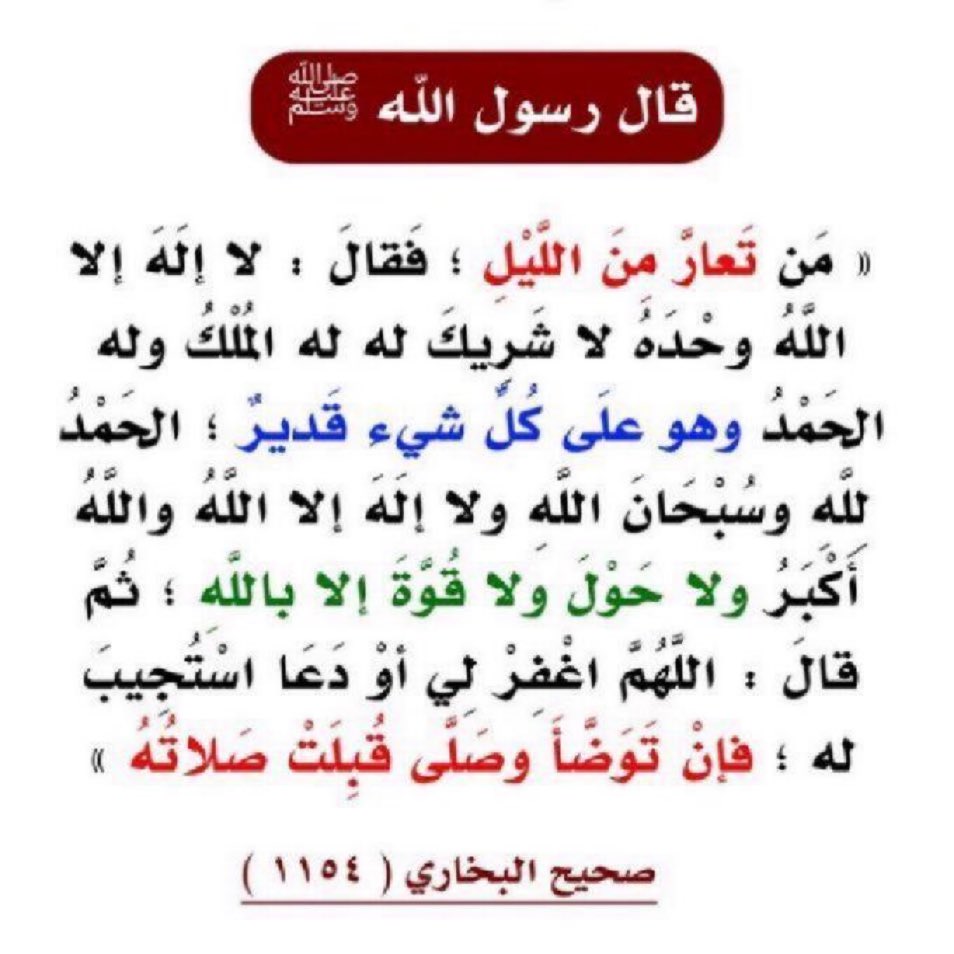 قال رسول الله ﷺ
« مَن تَعارَّ مِنَ اللَّيْلِ ؛ فَقالَ : لا إلَهَ إلا
اللَّهُ وحْدَهُ لا شَرِيكَ له له المُلْكُ وله
الحَمْدُ وهو علَى كُلِّ شيء قَديرٌ ؛ الحَمْدُ
للَّه وسُبْحَانَ اللَّهِ ولا إلَهَ إلا اللَّهُ واللَّهُ
أَكْبَرُ ولا حَوْلَ ولا قُوَّةَ إلا باللَّهِ ؛ ثُمَّ
قالَ : اللَّهُمَّ اغْفِرْ لي أوْ دَعَا اسْتُجِيبَ
له ؛ فإنْ تَوَضَّأَ وصَلَّى قُبِلَتْ صَلاتُهُ »
صحيح البخاري ( ١١٥٤ )